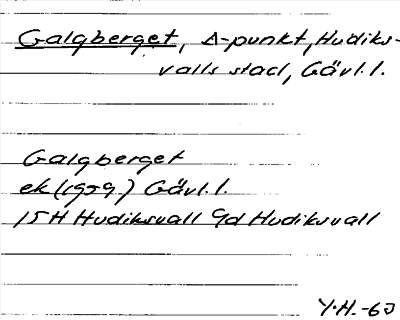 Galgberget, Δ-punkt, Hudiks-
valls stad, Gävl.l.
Galgberget
ek (1959) Gävl.l.
15H Hudiksvall 9d Hudiksvall
Y.H.-63